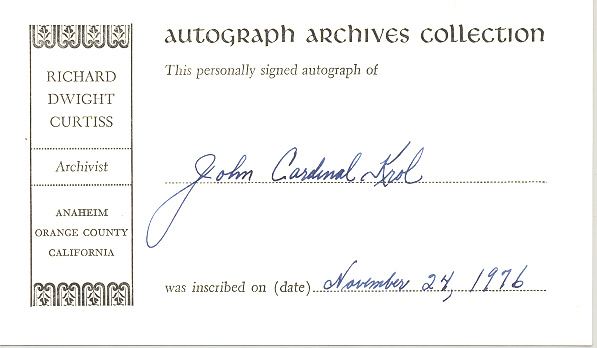 AUTOGRAPH ARCHIVES COLLECTION
This personally signed autograph of
John Cardinal Krol
was inscribed on (date) November 24, 1976
RICHARD
DWIGHT
CURTISS
Archivist
ANAHEIM
ORANGE COUNTY
CALIFORNIA